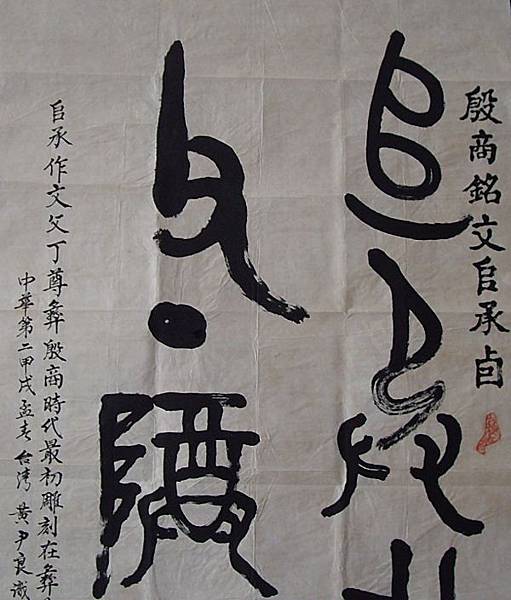 殷商銘文𠂤承卣
𠂤承
父丁
𠂤承作文父丁尊彝殷商時代最初雕刻在彝
中華第二甲戌孟春台灣黃尹良識